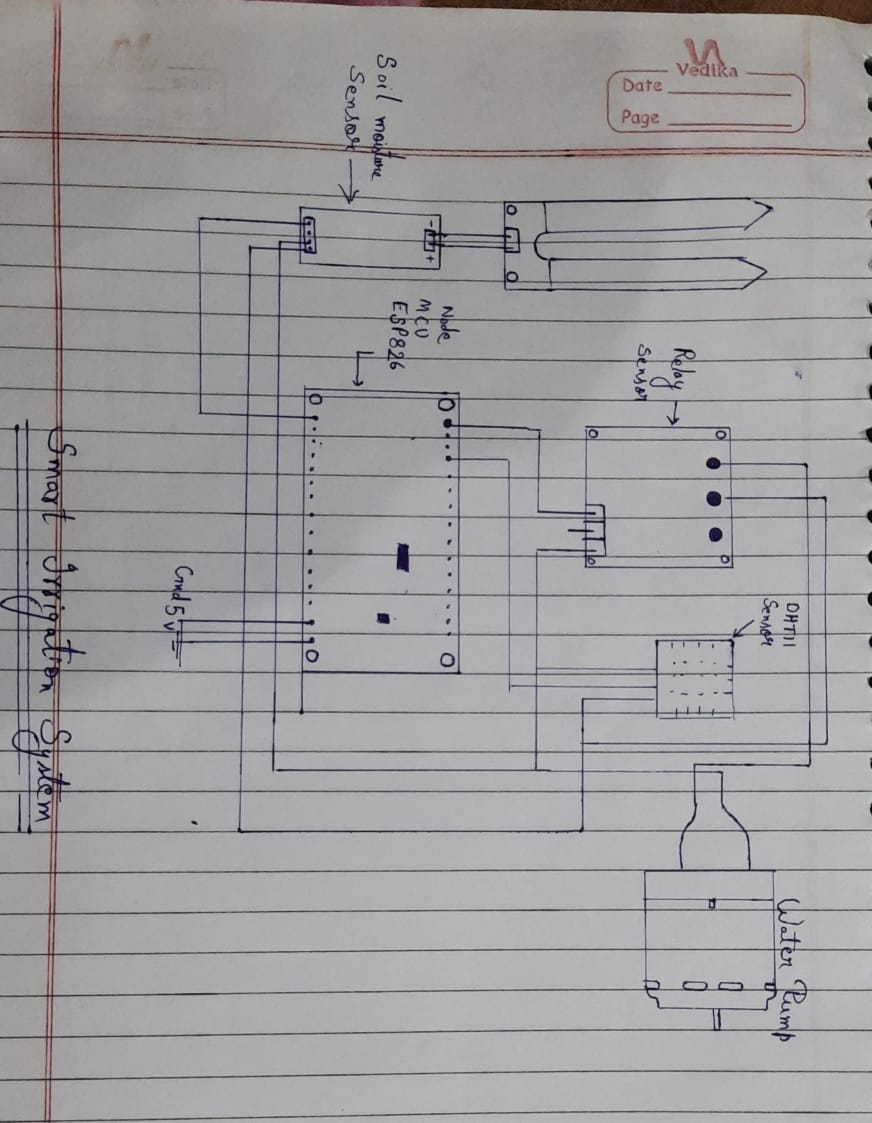 Vedika
Date
Page
Soil moisture
Sensor
Node
MCU
ESP826
Relay
Sensor
DHT11
Sensor
Gnd 5v
Water Pump
Smart Irrigation System